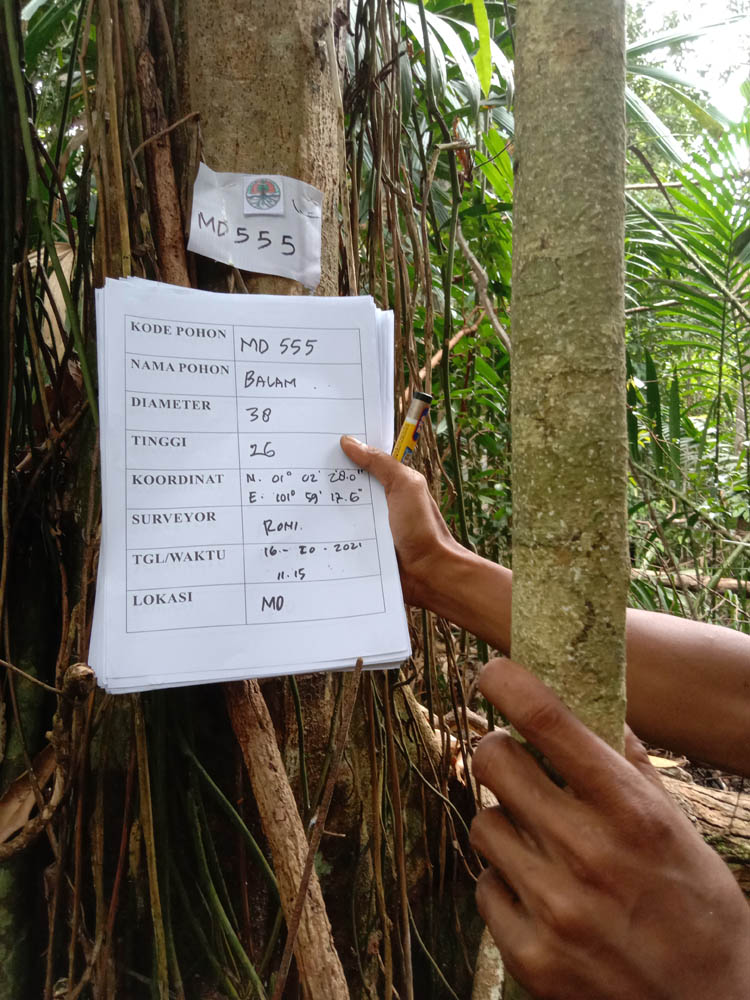 MD 555
KODE POHON MD 555
NAMA POHON BALAM
DIAMETER 38
TINGGI 26
KOORDINAT N. 01° 02' 28.0"
E. 101° 59' 17.6"
SURVEYOR RONI.
TGL/WAKTU 16 - 20 - 2021
11.15
LOKASI MD